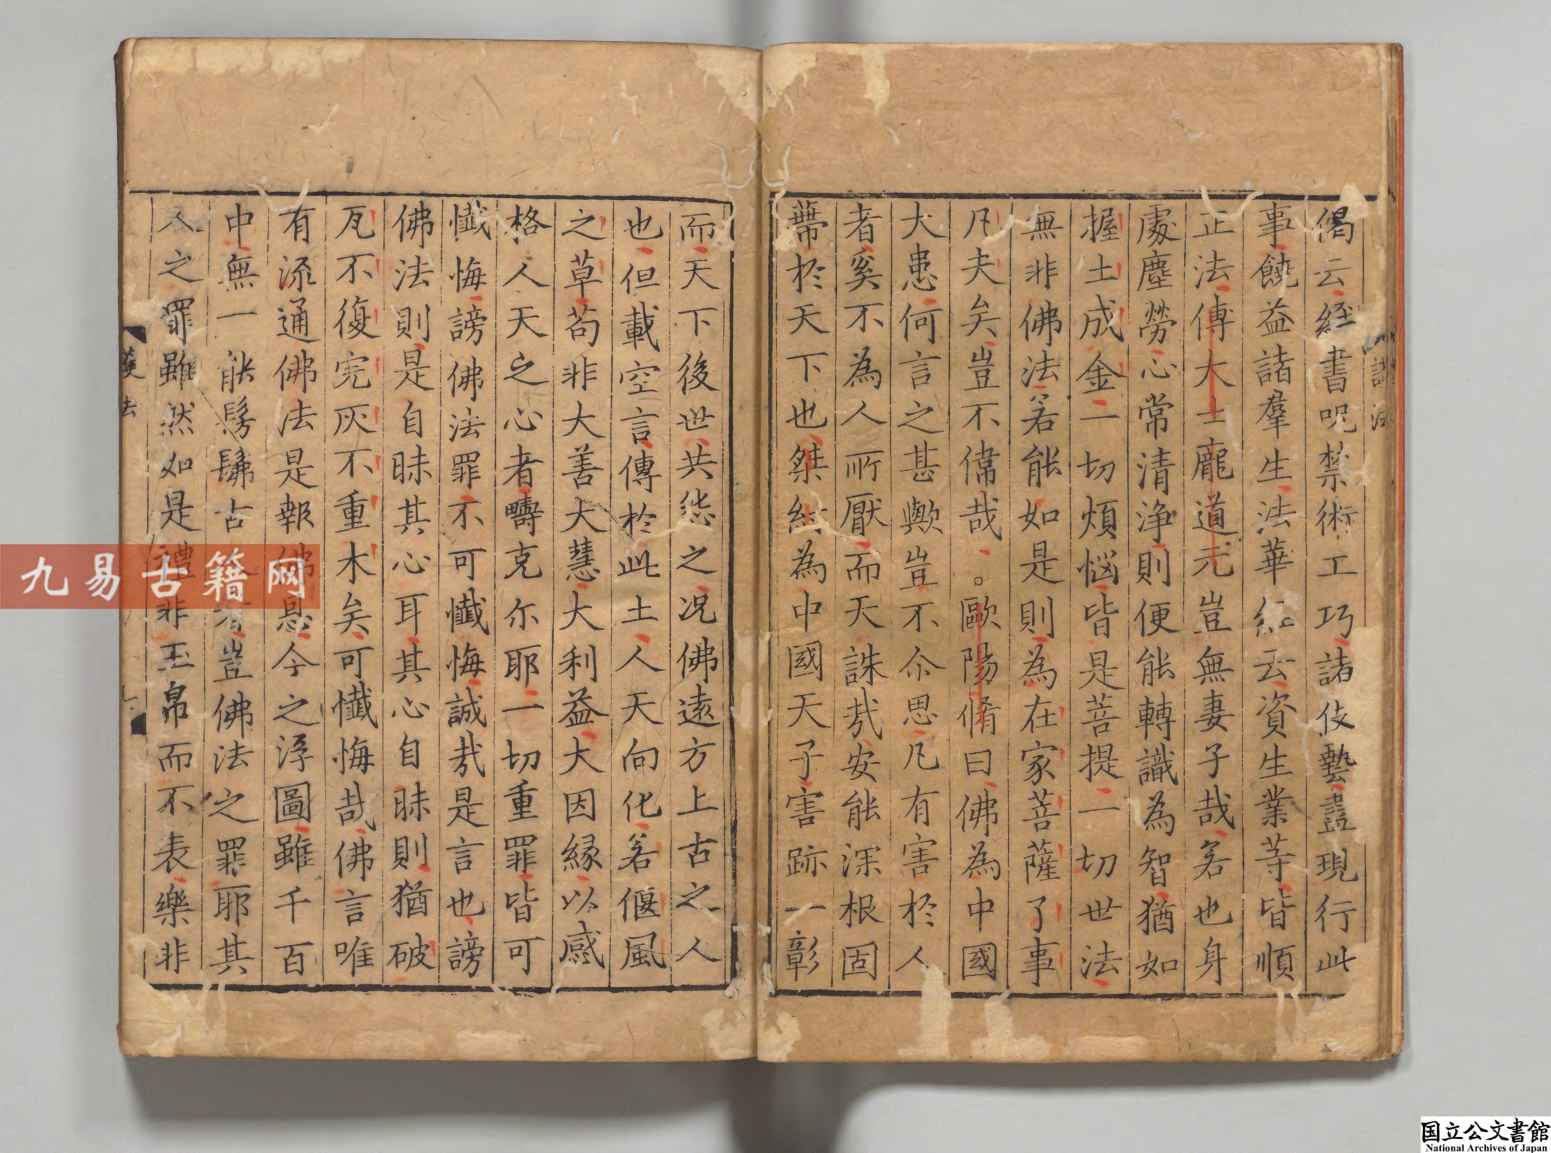 偈云經書呪禁術工巧諸伎藝盡現行此
事饒益諸羣生法華經云資生業等皆順
正法傳大士龐道元豈無妻子哉若也身
處塵勞心常清淨則便能轉識為智猶如
握土成金一切煩惱皆是菩提一切世法
無非佛法若能如是則為在家菩薩了事
凡夫矣豈不偉哉。歐陽脩曰佛為中國
大患何言之甚歟豈不尒思凡有害於人
者奚不為人所厭而天誅哉安能深根固
蔕於天下也桀紂為中國天子害跡一彰
而天下後世共怨之况佛遠方上古之人
也但載空言傳於此土人天向化若偃風
之草苟非大善大慧大利益大因緣以感
格人天之心者疇克尓耶一切重罪皆可
懺悔謗佛法罪不可懺悔誠哉是言也謗
佛法則是自昧其心耳其心自昧則猶破
瓦不復完灰不重木矣可懺悔哉佛言唯
有流通佛法是報佛恩今之浮圖雖千百
中無一能髣髴古 豈佛法之罪耶其
人之罪雖然如是禮非玉帛而不表樂非
護法
九易古籍网
国立公文書館
National Archives of Japan